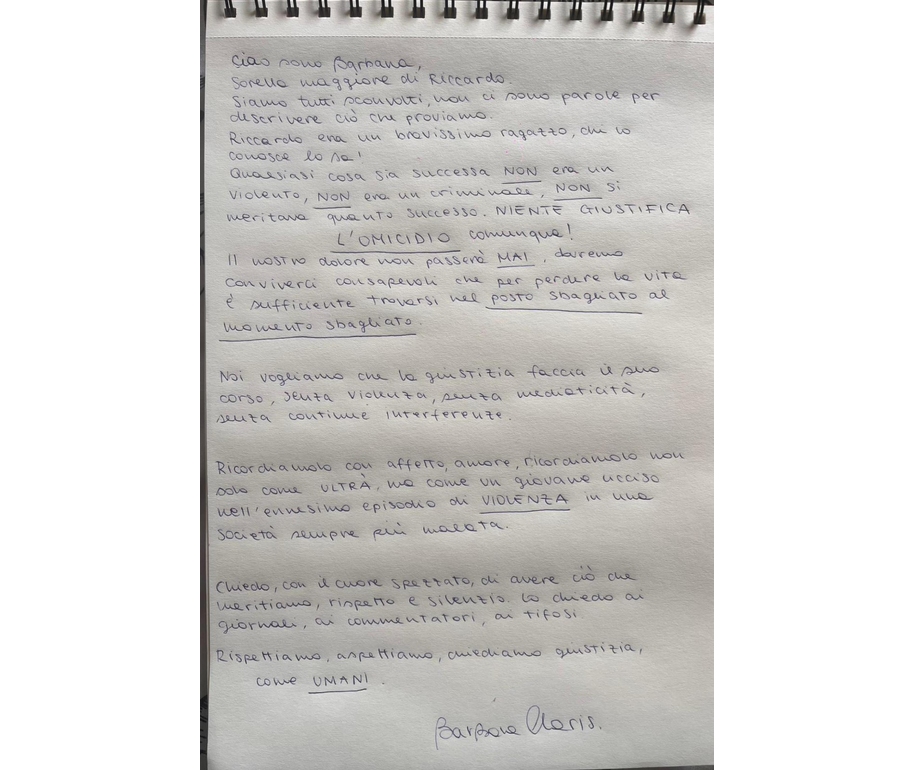 Ciao sono Barbara,
Sorella maggiore di Riccardo.
Siamo tutti sconvolti, non ci sono parole per
descrivere ciò che proviamo.
Riccardo era un bravissimo ragazzo, chi lo
conosce lo sa!
Qualsiasi cosa sia successa NON era un
violento, NON era un criminale, NON si
meritava quanto successo. NIENTE GIUSTIFICA
L'OMICIDIO comunque!
Il nostro dolore non passerà MAI, dovremo
conviverci consapevoli che per perdere la vita
è sufficiente trovarsi nel posto sbagliato al
momento sbagliato.
Noi vogliamo che la giustizia faccia il suo
corso, senza violenza, senza mediaticità,
senza continue interferenze.
Ricordiamolo con affetto, amore, ricordiamolo non
solo come ULTRÀ, ma come un giovane ucciso
nell'ennesimo episodio di VIOLENZA in una
società sempre più malata.
Chiedo, con il cuore spezzato, di avere ciò che
meritiamo, rispetto e silenzio. Lo chiedo ai
giornali, ai commentatori, ai tifosi
Rispettiamo, aspettiamo, chiediamo giustizia,
come UMANI.
Barbara Claris.